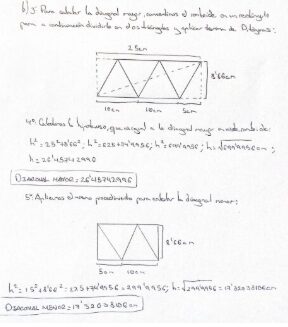 b) 3º Para calcular la diagonal mayor, convertimos el romboide en un rectángulo
para a continuación dividirlo en dos triángulos y aplicar teorema de Pitágoras:
25cm
8'66cm
10cm 10cm 5cm
4º Calculamos la hipotenusa, que es igual a la diagonal mayor en este romboide:
h² = 25²+8'66²; h²=625+74'9956; h²=699'9956; h=√699'9956cm;
h=26'45742990
DIAGONAL MAYOR=26'45742996
5º Aplicamos el mismo procedimiento para calcular la diagonal menor:
8'66cm
5cm 10cm
h²=15²+8'66²=225+74'9956=299'9956; h=√299'9956=17'32038106cm
DIAGONAL MENOR=17'32038106cm